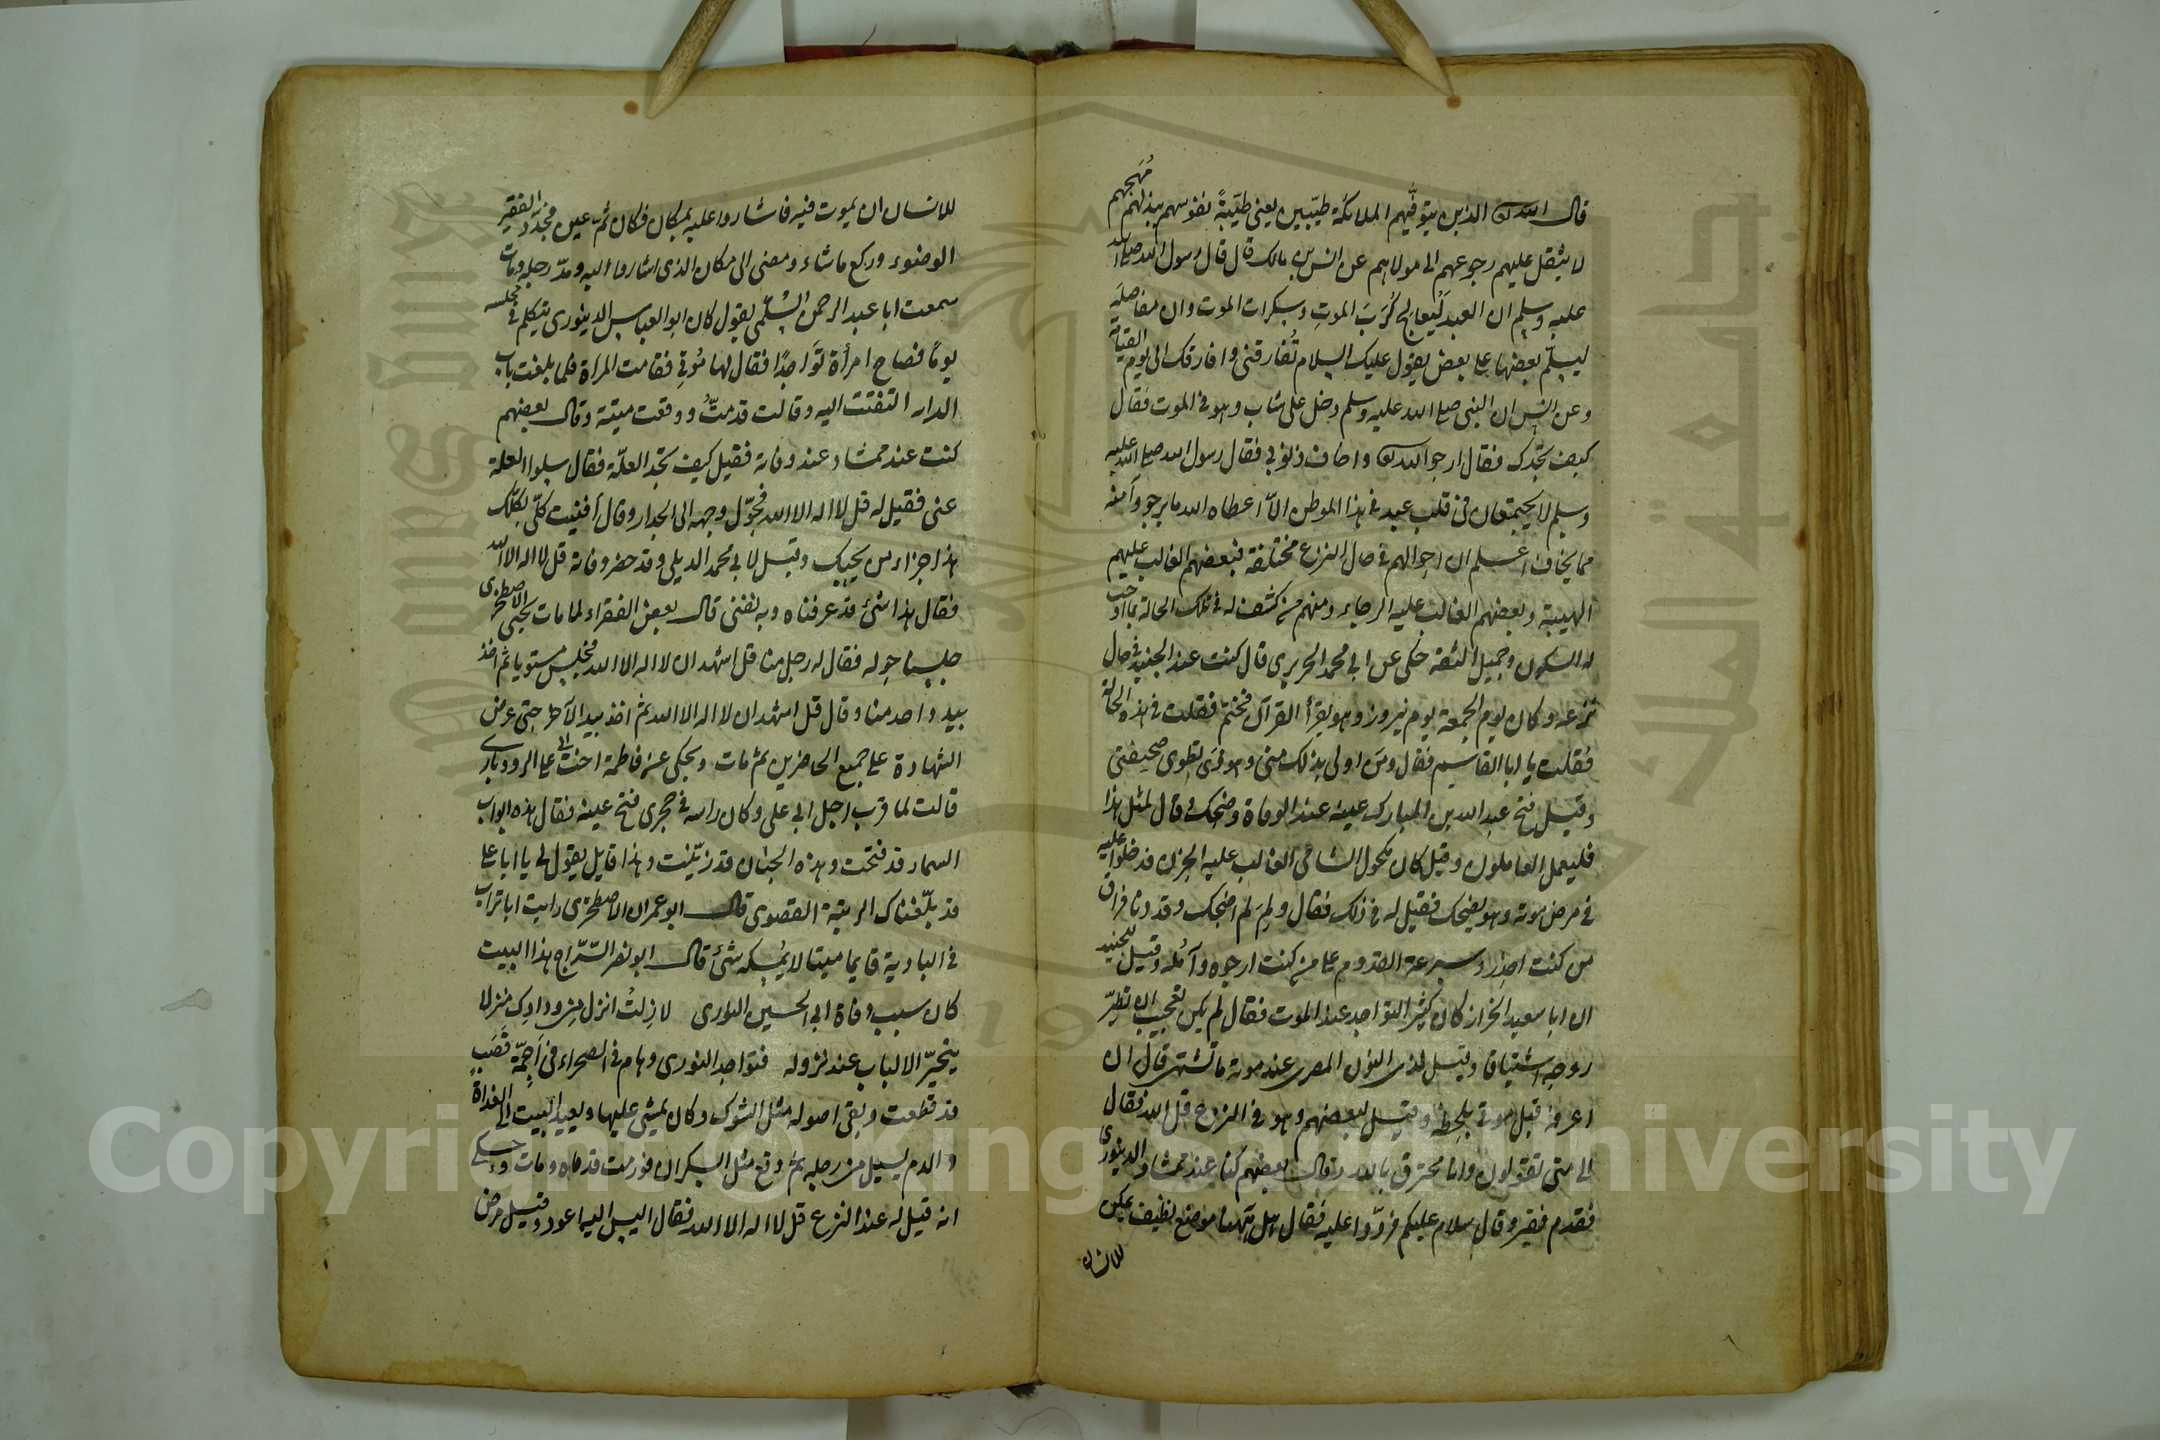 قال الله تع الذين يتوفّيهم الملائكة طيّبين يعنى طيّبةً نفوسهم ببذلهم مُهَجهم
لا يثقل عليهم رجوعهم الى مولاهم عن انس بن مالك قال قال رسول الله صلى الله
عليه وسلم ان العبد لَيُعالج كُرَبَ الموتِ وسكرات الموت وان مفاصله
ليسلّم بعضها على بعض يقول عليك السلام تُفارقنى وافارقك الى يوم القيامة
وعن انس ان النبى صلى الله عليه وسلم دخل على شاب وهو فى الموت فقال
كيف تجدك فقال ارجو الله تع واخاف ذنوبى فقال رسول الله صلى الله عليه
وسلم لا يجتمعان فى قلب عبد فى هذا الموطن الاّ اعطاه الله ما يرجو وآمنه
مما يخاف اعلم ان احوالهم فى حال النزع مختلفة فبعضهم الغالب عليهم
الهيبة وبعضهم الغالب عليه الرجاء ومنهم من كشف له فى تلك الحالة بما اوجب
له السكون وجميل الثقة حكى عن ابى محمد الحريرى قال كنت عند الجنيد فى حال
نزعه وكان يوم الجمعة يوم نيروز وهو يقرأ القرآن فختم فقلت فى هذه الحالة
فقلت يا ابا القاسم فقال ومَن اولى بذلك منى وهو ذَى تطوى صحيفتى
وقيل فتح عبد الله بن المبارك عينه عند الوفاة وضحك وقال لمثل هذا
فليعمل العاملون وقيل كان مكحول الشامى الغالب عليه الحزن فدخلوا عليه
فى مرض موته وهو يضحك فقيل له فى ذلك فقال ولِمَ لم اضحك وقد دنا فراق
من كنت احذر وسرعة القدوم على من كنت ارجوه وآمله وقيل للجنيد
ان ابا سعيد الخراز كان كثير التواجد عند الموت فقال لم يكن تعجيب ان تطير
روحه اشتياقا وقيل لذى النون المصرى عند موته ما تشتهى قال ان
اعرفه قبل موتى بلحظة وقيل لبعضهم وهو فى النزع قل الله فقال
الى متى تقولون وانا محترق بالله وقال بعضهم كنا عند ممشاد الدينورى
فقدم فقير وقال سلام عليكم فردّوا عليه فقال هل ههنا موضع نظيف يمكن
للانسان
للانسان ان يموت فيه فاشاروا عليه بمكان فكان ثمّ عين فجدد الفقير
الوضوء وركع ما شاء ومضى الى مكان الذى اشاروا اليه ومدّ رجليه ومات
سمعت ابا عبد الرحمن السُلّمى يقول كان ابو العباس الدينورى يتكلم فى مجلسه
يومًا فصاح امرأة تَوَاجدًا فقال لها مُوتِى فقامت المراة فلما بلغت باب
الدار التفتت اليه وقالت قد متُّ ووقعت ميتة وقال بعضهم
كنت عند ممشاد عند وفاته فقيل كيف تجد العلّة فقال سلوا العلة
عنى فقيل له قل لا اله الا الله فحوّل وجهه الى الجدار وقال أفنيت كلّى بكلّك
هذا جزاء من يحبك وقيل لابى محمد الدبيلى وقد حضر وفاته قل لا اله الا الله
فقال هذا شئ قد عرفناه وبه نفنى قال بعض الفقراء لما مات يحيى الاصطخرى
جلسنا حوله فقال له رجل منا قل اشهد ان لا اله الا الله فجلس مستويا ثم اخذ
بيد واحد منا وقال قل اشهد ان لا اله الا الله ثم اخذ بيد الآخر حتى عرض
الشهادة على جميع الحاضرين ثم مات ويحكى عن فاطمة اخت ابى على الرودبارى
قالت لما قرب اجل ابى على وكان راسه فى حجرى فتح عينه فقال هذه ابواب
السماء قد فتحت وهذه الجنان قد زيّنت وهذا قايل يقول لى يا ابا على
قد بلّغناك الرتبة القصوى قال ابو عمران الاصطخرى رايت ابا تراب
فى البادية قايما ميتا لا يُمسكه شئ قال ابو نصر السّرّاج هذا البيت
كان سبب وفاة ابى الحسين النورى لا زِلتُ انزل من ودادِك منزلا
يتحيّر الالباب عند نزوله فتواجد النورى وهام فى الصحراء فى اَجمّة قَصَب
قد قطعت وبقى اصوله مثل الشوك وكان يمشى عليها ويعيد البيت الى الغداة
والدم يسيل من رجله ثم وقع مثل السكران فورمت قدماه ومات وحكى
انه قيل له عند النزع قل لا اله الا الله فقال اليس اليه اعود وقيل مرض
Copyright © King Saud University